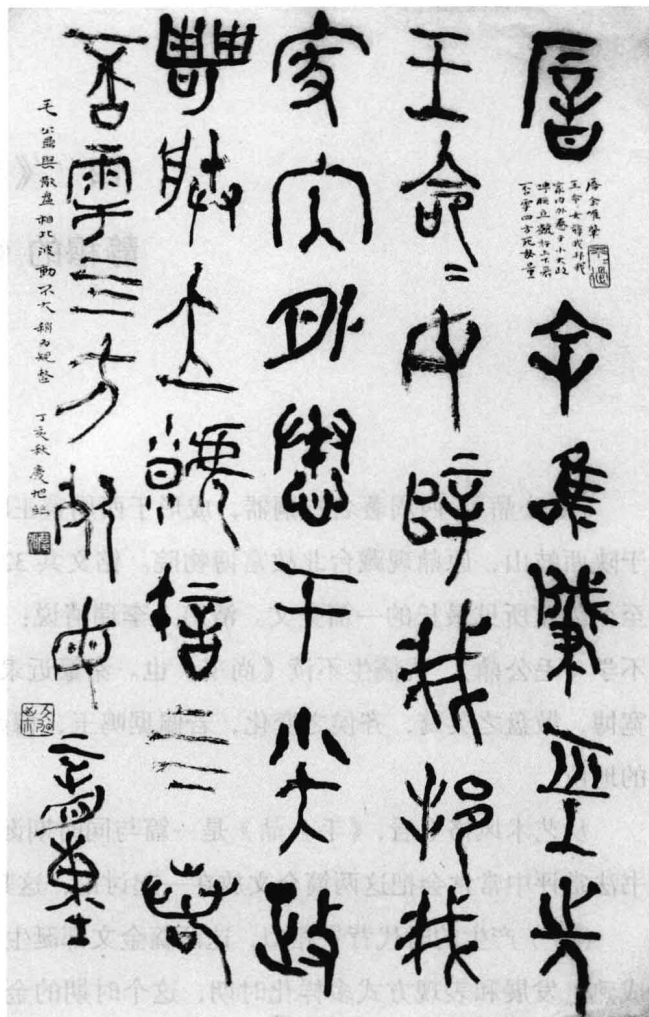 厝余隹肇巠先
王命=女辥我邦我
家内外憃于小大政
甹朕立虩許上下若
否雩四方死母童
王命女辥我邦我
家内外憃于小大政
甹朕立虩許上下若
否雩四方死毋童
毛公鼎與散盘相比波動不大稍为规整 丁亥秋 慶旭临